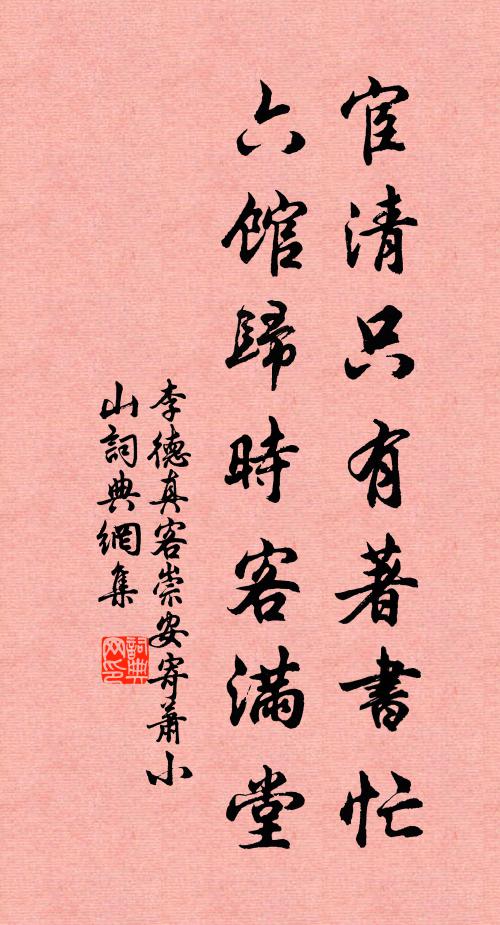 宦清只有著書忙
六館歸時客滿堂
李德真客崇安寄蕭小
山詞典網集
詞典
网印